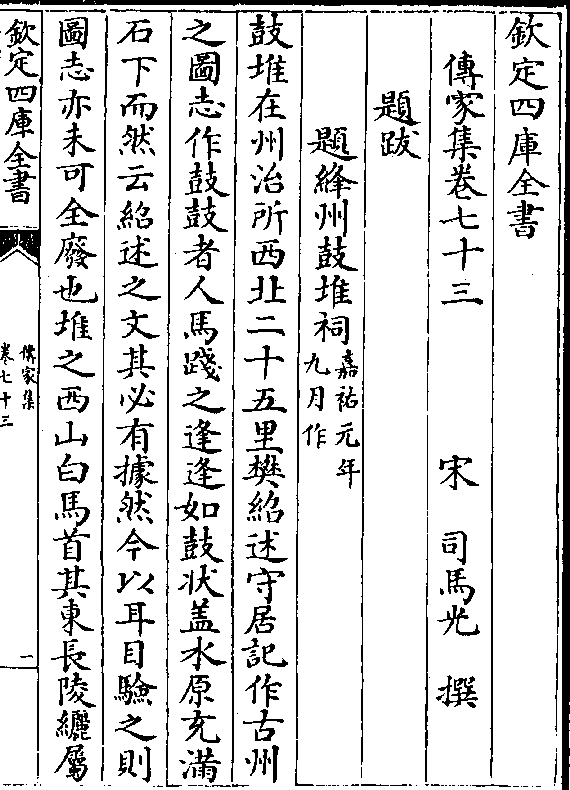 欽定四庫全書
傳家集卷七十三
宋 司馬光 撰
題跋
題絳州鼓堆祠嘉祐元年九月作
鼓堆在州治所西北二十五里樊紹述守居記作古州
之圖志作鼓鼓者人馬踐之逢逢如鼓状盖水原充滿
石下而然云紹述之文其必有據然今以耳目驗之則
圖志亦未可全廢也堆之西山曰馬首其東長陵纚屬
欽定四庫全書
傳家集
卷七十三
一